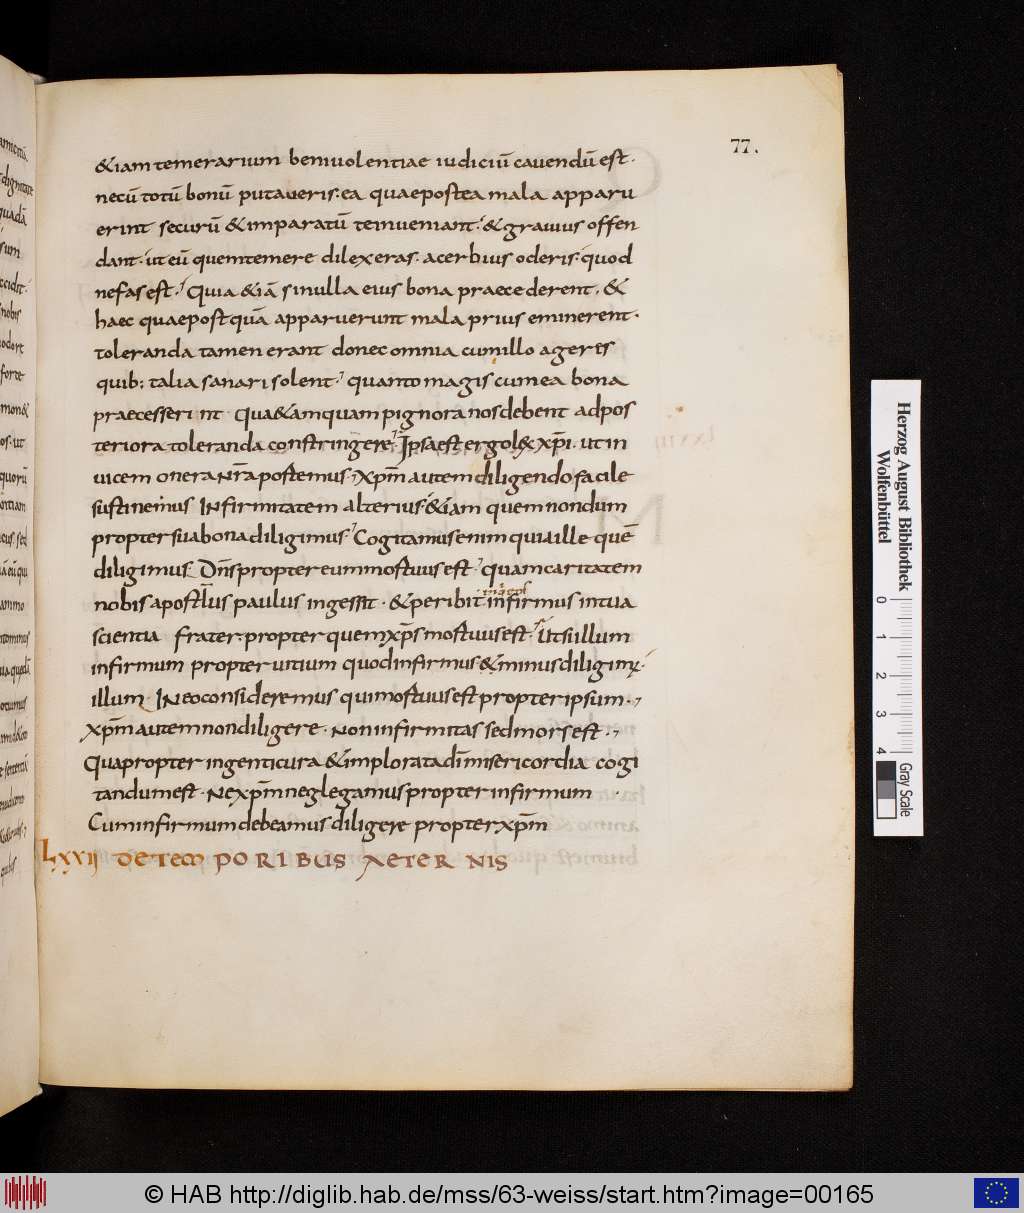 77.
&iam temerarium beniuolentiae iudiciū cauendū est.
necū totū bonū putaueris. ea quaepostea mala apparu
erint securū &imparatū teinueniant. &grauius offen
dant. ut eū quemtemere dilexeras. acerbius oderis. quod
nefas est. Quia &iā sinulla eius bona praecederent. &
haec quaepostquā apparuerunt mala prius eminerent.
toleranda tamen erant donec omnia cumillo ageres
quib; talia sanari solent. quantomagis cumea bona
praecesserint quae&amquam pignora nosdebent adpos
teriora toleranda constringere. Ipsaest ergol&x xp̄i. ut in
uicem onera nr̄a portemus. xp̄m autem diligendo facile
sustinemus Infirmitatem alterius. &iam quem nondum
propter sua bona diligimus. Cogitamus enim quia ille quē
diligimus Dn̄s propter eum mortuus est. quam caritatem
nobis apost̄lus paulus ingessit. &peribit infirmus intua
scientia frater. propter quem xp̄s mortuus est. Utsi illum
infirmum propter uitium quod infirmus. &minus diligim;
illum. Ineo consideremus qui mortuus est propter ipsum.
xp̄m autem non diligere. Non infirmitas sed mors est.
Quapropter ingenti cura &implorata dī misericordia cogi
tandum est. Ne xp̄m neglegamus propter infirmum
Cum infirmum debeamus diligere propter xp̄m
LXXII DE TEMPORIBUS AETERNIS
Herzog August Bibliothek
Wolfenbüttel
0 1 2 3 4
Gray Scale
© HAB http://diglib.hab.de/mss/63-weiss/start.htm?image=00165